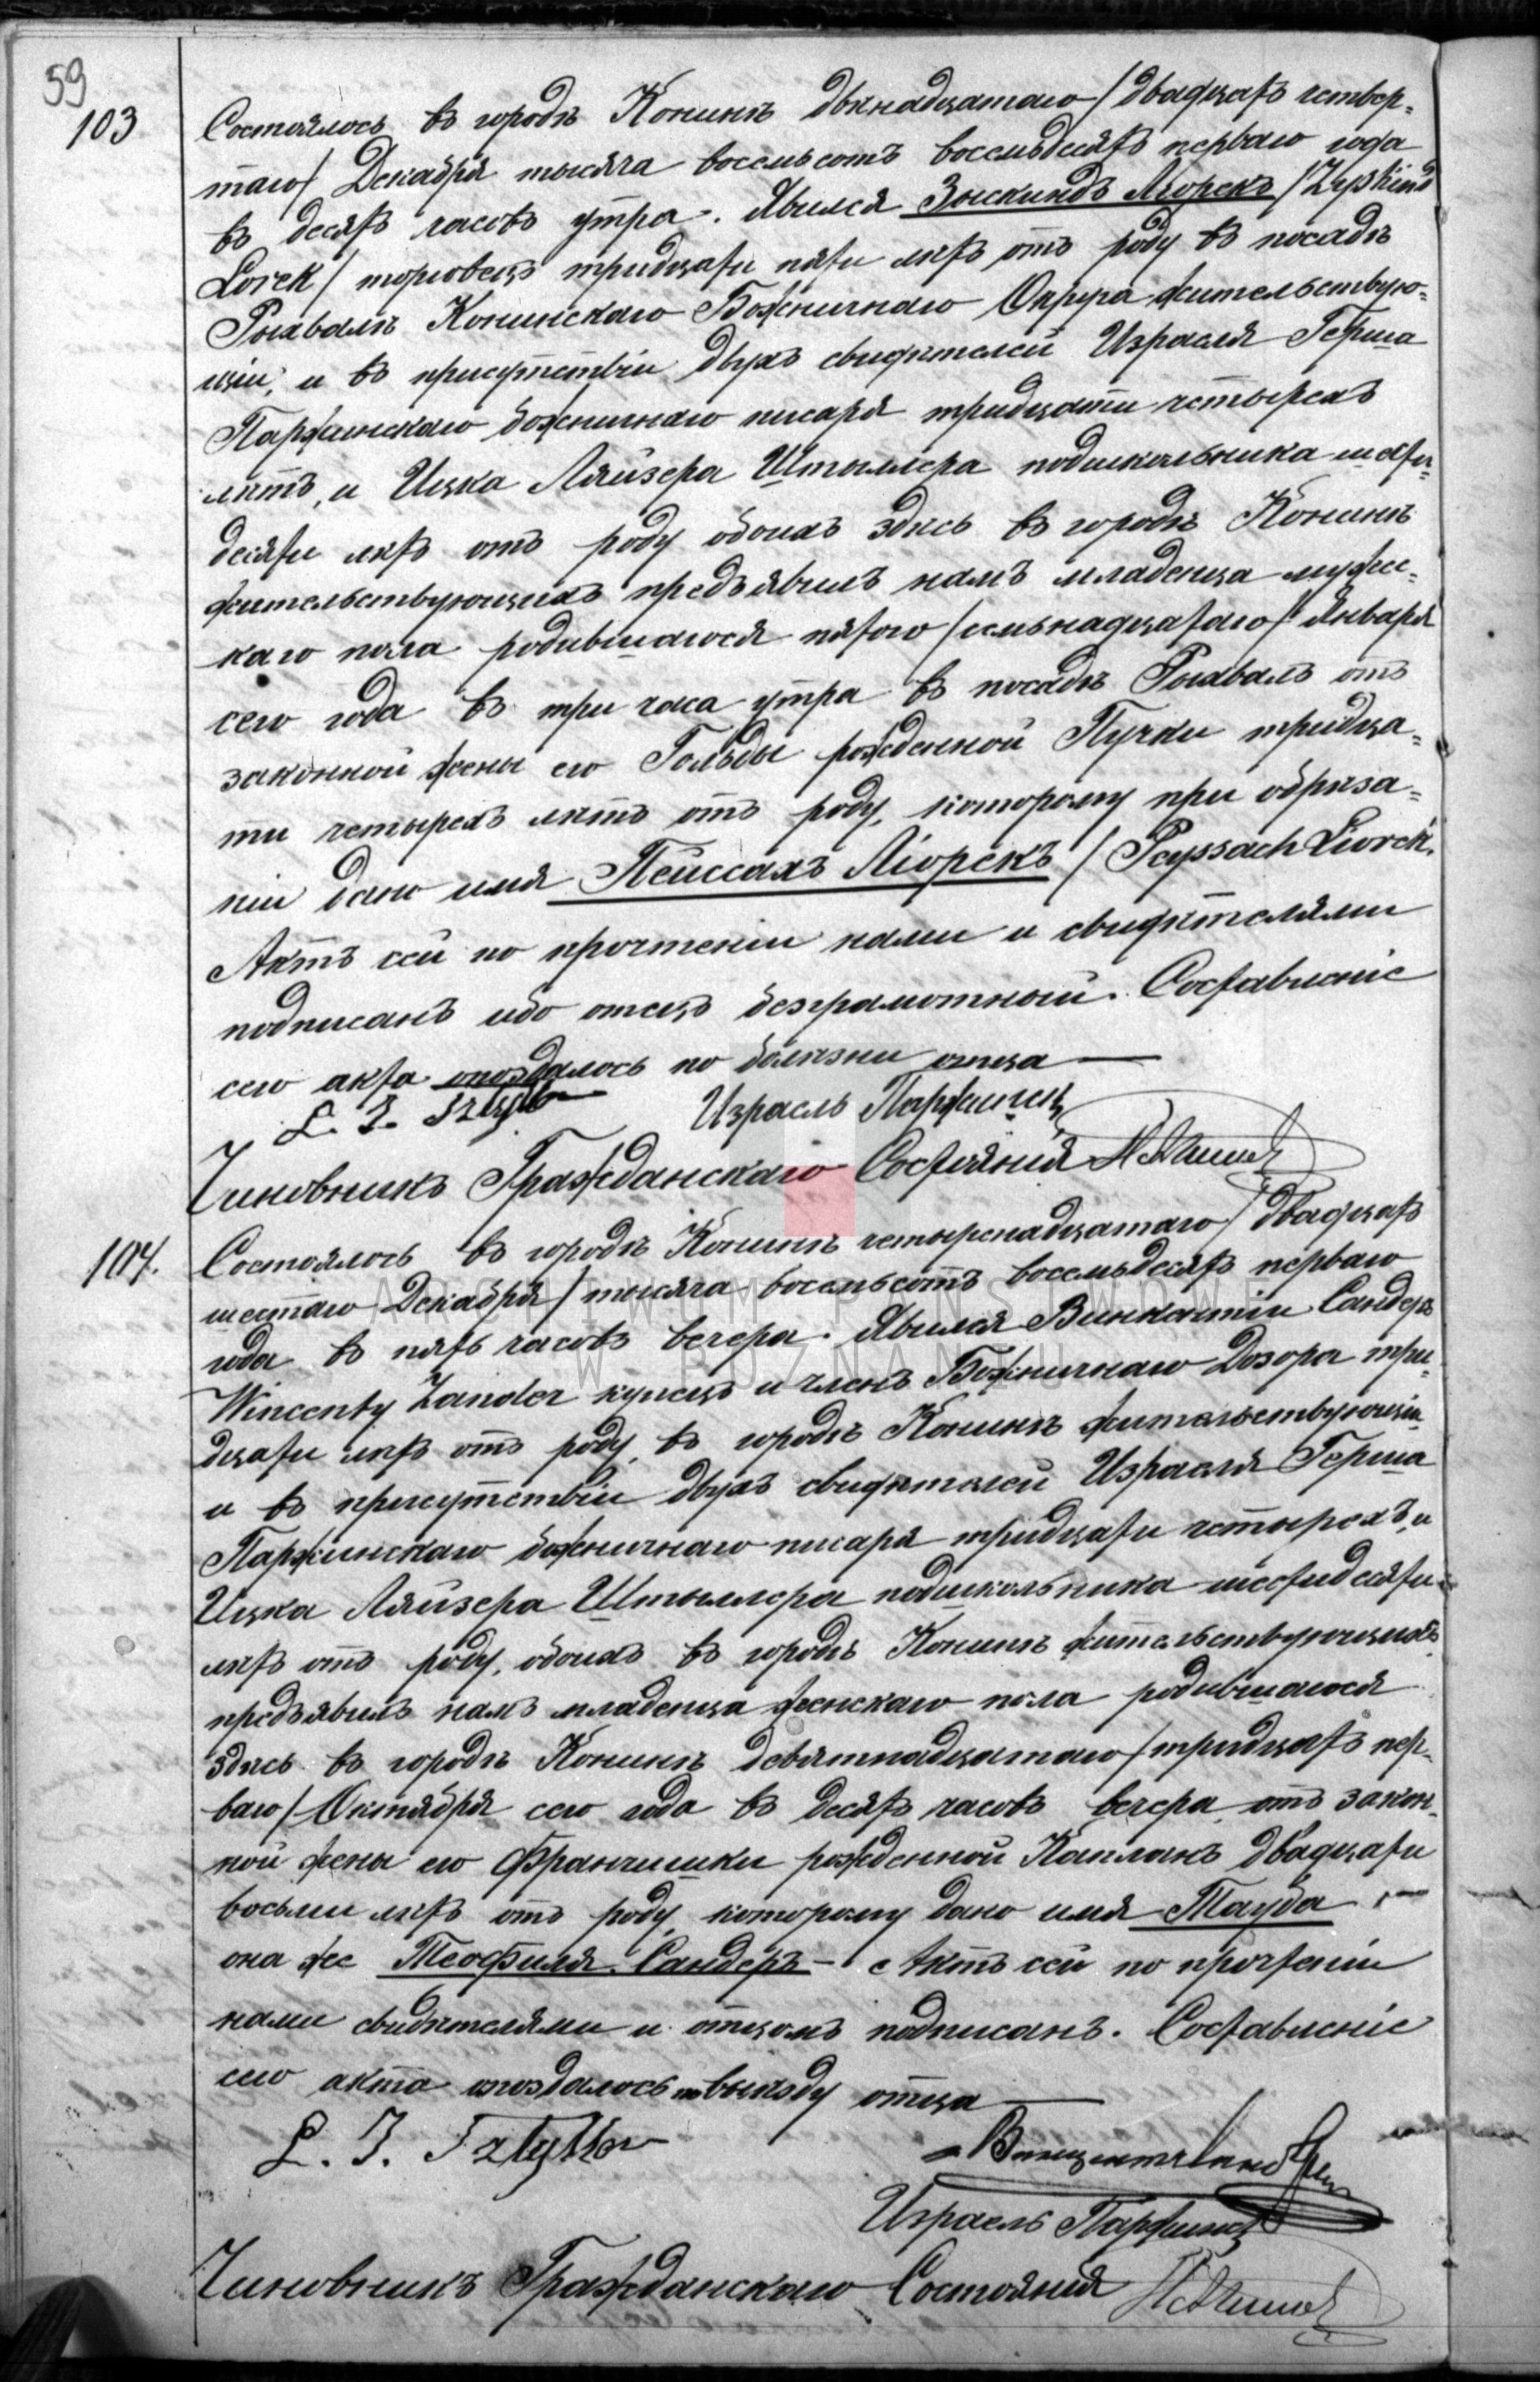 59
103
Состоялось въ городѣ Конинѣ двѣнадцатаго / двадцать четвер-
таго / Декабря тысяча восемьсотъ восемьдесятъ перваго года
въ десять часовъ утра. Явился Зыскиндъ Ліорекъ / Zyskind
Lorek / торговецъ тридцати пяти лѣтъ отъ роду въ посадѣ
Рыхвалѣ Конинскаго Божничнаго Округа жительствую-
щій, и въ присутствіи двухъ свидѣтелей Израеля Герша
Парженскаго божничнаго писаря тридцати четырехъ
лѣтъ, и Ицка Ляйзера Штыллера подшкольника шести-
десяти лѣтъ отъ роду обоихъ здѣсь въ городѣ Конинѣ
жительствующихъ предъявилъ намъ младенца мужес-
каго пола родившагося пятого / семьнадцатаго / Января
сего года въ три часа утра въ посадѣ Рыхвалѣ отъ
законной жены его Гольды рожденной Пучки тридца-
ти четырехъ лѣтъ отъ роду, которому при обрѣза-
ніи дано имя Пейссахъ Ліорекъ / Peyssach Liorek.
Актъ сей по прочтеніи нами и свидѣтелями
подписанъ ибо отецъ безграмотный. Составленіе
сего акта опоздалось по болѣзни отца
L. I. Sztyller
Израель Парженск
Чиновникъ Гражданскаго Состоянія
104.
Состоялось въ городѣ Конинѣ четырнадцатаго / двадцать
шестаго Декабря / тысяча восемьсотъ восемьдесятъ перваго
года въ пять часовъ вечера. Явился Винкентій Сандеръ
Wincenty Zander купецъ и членъ Божничнаго Дозора три-
дцати лѣтъ отъ роду, въ городѣ Конинѣ жительствующій
и въ присутствіи двухъ свидѣтелей Израеля Герша
Парженскаго божничнаго писаря тридцати четырехъ, и
Ицка Ляйзера Штыллера подшкольника шестидесяти
лѣтъ отъ роду, обоихъ въ городѣ Конинѣ жительствующихъ
предъявилъ намъ младенца женскаго пола родившагося
здѣсь въ городѣ Конинѣ девятнадцатаго / тридцать пер-
ваго / Октября сего года въ десять часовъ вечера, отъ закон-
ной жены его Францишки рожденной Капланъ двадцати
восьми лѣтъ отъ роду, которому дано имя Тауба
она же Теофиля Сандеръ - Актъ сей по прочтеніи
нами свидѣтелями и отцомъ подписанъ. Составленіе
сего акта опоздалось по выѣзду отца
L. I. Sztyller
Винцентъ Сандеръ
Израель Парженск
Чиновникъ Гражданскаго Состоянія
ARCHIWUM PAŃSTWOWE
W POZNANIU